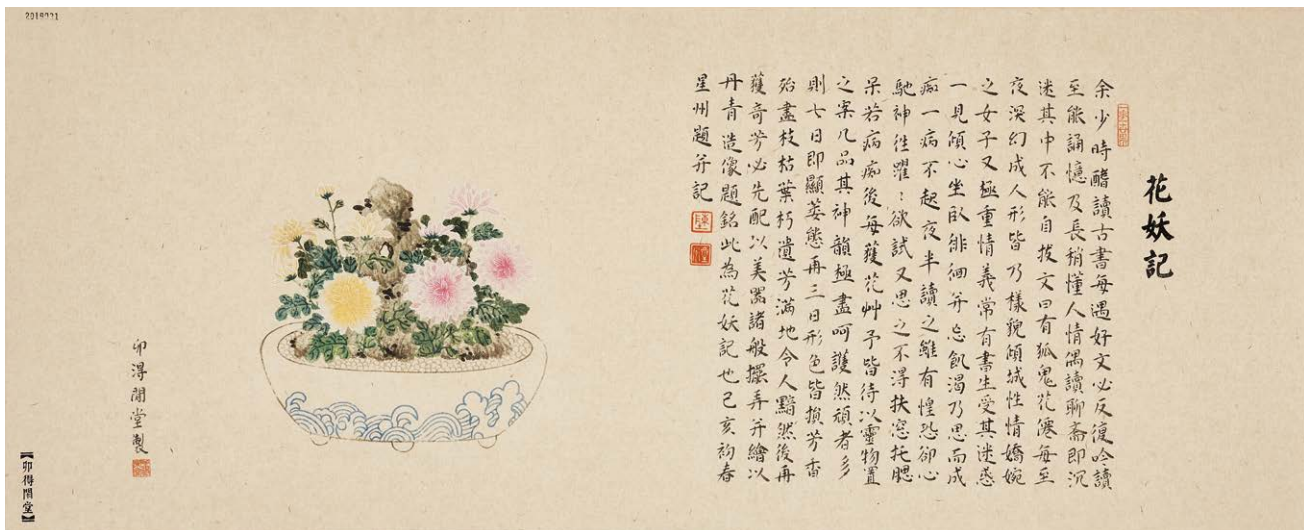 花妖記
余少時酷讀古書每遇好文必反復吟讀
至能誦憶及長稍懂人情偶讀聊齋即沉
迷其中不能自拔文曰有狐鬼花僊每至
夜深幻成人形皆乃樣貌傾城性情嬌婉
之女子又極重情義常有書生受其迷惑
一見傾心坐臥徘徊并忘飢渴乃思而成
痴一病不起夜半讀之雖有惶恐卻心
馳神往躍：欲試又思之不得扶窓托腮
呆若病痴後每獲花艸予皆待以靈物置
之案几品其神韻極盡呵護然頑者多
則七日即顯萎態再三日形色皆損芳香
殆盡枝枯葉朽遺芳滿地令人黯然後再
獲奇芳必先配以美器諸般擺弄并繪以
丹青造像題銘此為花妖記也己亥初春
星州題并記
卯得閒堂製
【卯得閒堂】
2019021